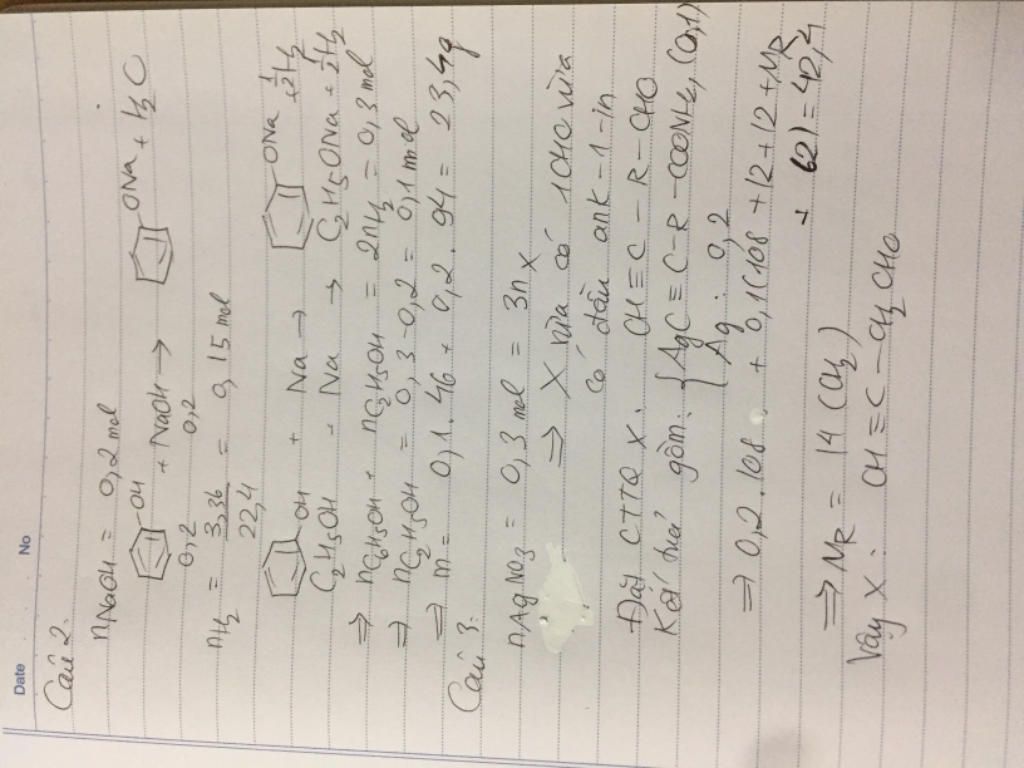 Date No
Câu 2.
nNaOH = 0,2 mol
OH + NaOH → ONa + H2O
0,2 0,2
nH2 = 3,36 / 22,4 = 0,15 mol
OH + Na → ONa + 1/2H2
C2H5OH + Na → C2H5ONa + 1/2H2
⇒ nC6H5OH + nC2H5OH = 2nH2 = 0,3 mol
⇒ nC2H5OH = 0,3 - 0,2 = 0,1 mol
⇒ m = 0,1 . 46 + 0,2 . 94 = 23,4g
Câu 3.
nAgNO3 = 0,3 mol = 3nX
⇒ X vừa có 1CHO vừa
có đầu ank-1-in
Đặt CTTQ X: CH≡C-R-CHO
Kết tủa gồm: { AgC≡C-R-COONH4 (0,1)
Ag: 0,2
⇒ 0,2.108 + 0,1(108 + 12 + 12 + MR
+ 62) = 42,4
⇒ MR = 14 (CH2)
Vậy X: CH≡C-CH2CHO